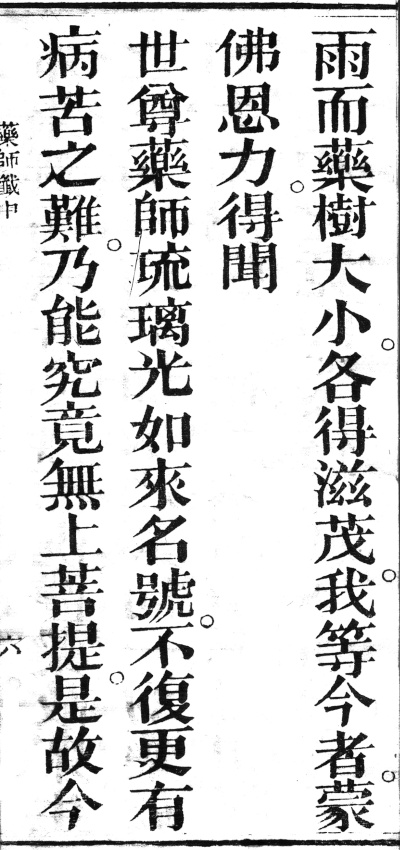 雨而藥樹大小。各得滋茂。我等今者。蒙
佛恩力。得聞
世尊藥師琉璃光如來名號。不復更有
病苦之難。乃能究竟無上菩提。是故今
藥師懺中
六